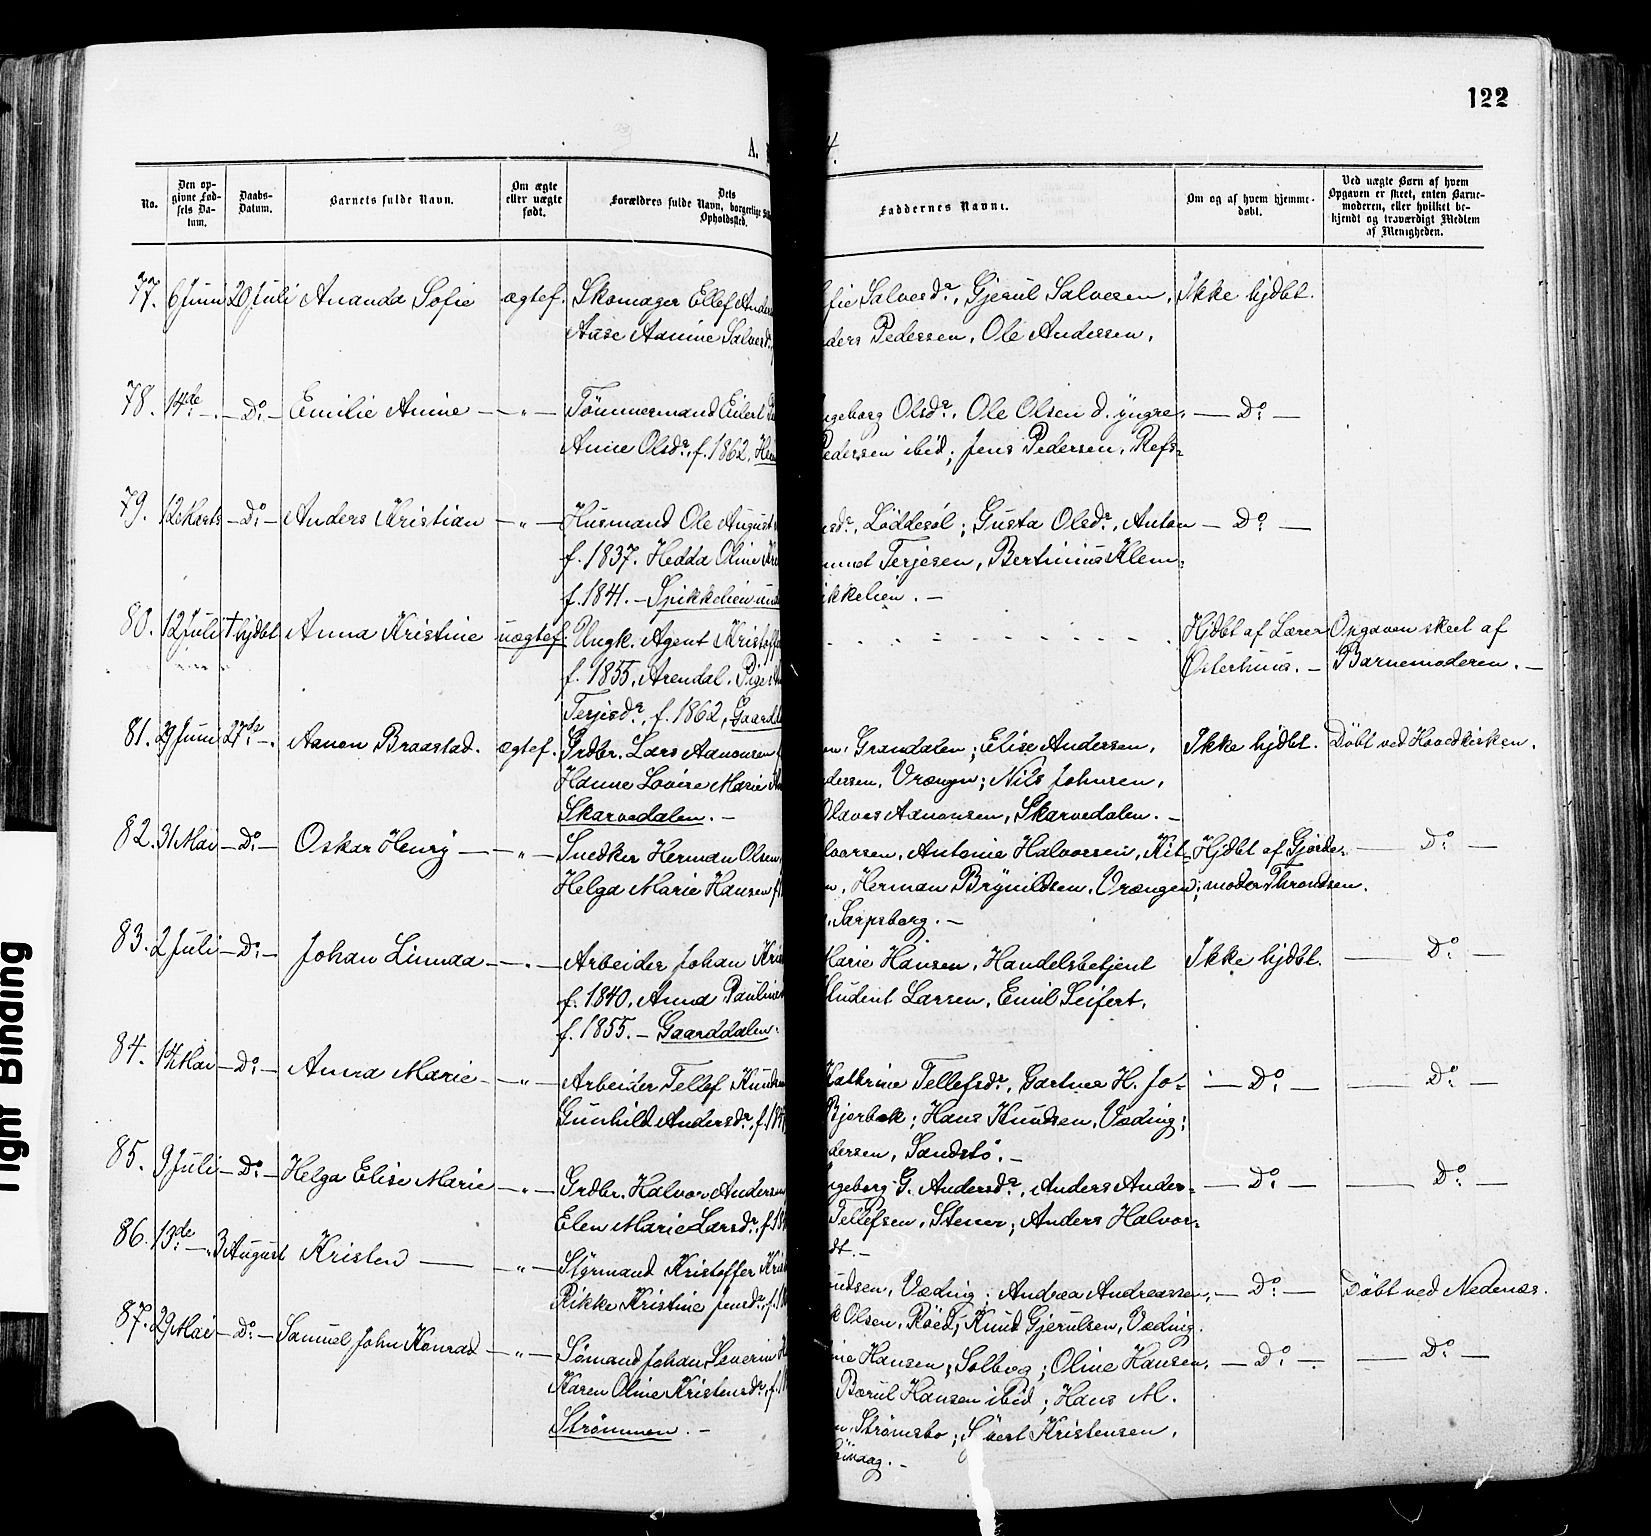 122
A.
4.
No.
Den op-
givne Fød-
sels Da-
tum.
Daabs-
Datum.
Barnets fulde Navn.
Om ægte
eller uægte
født.
Dets
Forældres fulde Navn, borgerlige
Opholdssted.
Faddernes Navne.
Om og af hvem hjemme-
døbt.
Ved uægte Børn af hvem
Opgaven er skeet, enten Barne-
moderen, eller hvilket be-
kjendt og troværdigt Medlem
af Menigheden.
77. 6 Juni 20 Juli Ananda Sofie ægtef. Skomager Ellef Anders
Aase Aanine Salvesd.
fie Salvesdr., Gjerul Salvesen, Ikke hjdbt.
ders Pedersen, Ole Andersen,
78. 14de -. — Do. — Emilie Anine — „ — Tömmermand Eilert
Anne Olsdr., f. 1862,
ngeborg Olsdr., Ole Olsen d. yngre, — Do. —
Pedersen ibid; Jens Pedersen, Refs-
79. 12 Marts — Do. — Anders Kristian — „ — Husmand Ole August
f. 1837. Hedda Oline
f. 1841. — Spikkelien
sdr., Löddesöl; Gusta Olsdr., Anton — Do. —
mund Terjesen, Bertinius Klem-
ikkelien. —
80. 12 Juli † hjdbt Anna Kristine uægtef. Ungk. Agent Kristoffer
f. 1855, Arendal. Pige
Terjesdr., f. 1862, Gaardd
Hjdbt af Lærer Opgaven skeet af
Osterhuus. — Barnemoderen. —
81. 29 Juni 27de -. Aanon Braastad. ægtef. Grdbr. Lars Aanonsen
Hanne Lovise Marie
Skarvedalen. —
en, Grandalen; Elise Andersen, Ikke hjdbt. Döbt ved Hovedkirken.
dersen, Vrængen; Nils Johnsen,
Olaves Aanonsen, Skarvedalen. —
82. 31 Mai — Do. — Oskar Henry — „ — Snedker Herman Olsen
Helga Marie Hansen f.
lvorsen, Antonie Halvorsen, Kit- Hjdbt af Gjorde- — Do. —
n, Herman Brynildsen, Vrængen; moder Throndsen.
, Sarpsborg. —
83. 2 Juli — Do. — Johan Linnda — „ — Arbeider Johan
f. 1840, Anna Pauline
f. 1855. — Gaarddalen.
Marie Hansen, Handelsbetjent Ikke hjdbt. — Do —
Student Larsen, Emil Seifert,
84. 14 Mai — Do. — Anna Marie — „ — Arbeider Tellef Knuds
Gunhild Andersdr., f. 18
Kathrine Tellefsdr., Gartner H. Jo- — Do. — — Do. —
Bjorbek; Hans Knudsen, Væding;
dersen, Sandstö. —
85. 9 Juli — Do. — Helga Elise Marie — „ — Grdbr. Halvor Andersen
Elen Marie Larsdr., f. 18
ngeborg G. Andersdr., Anders Ander- — Do. — — Do. —
Tellefsen, Stener; Anders Halvor-
dt. —
86. 13de -. 3 August Kristen — „ — Styrmand Kristoffer
Rikke Kristine Jensdr., f.
nudsen, Væding; Andrea Andreassen, — Do. — Döbt ved Nedenæs.
k Olsen, Röed; Knud Gjerulsen, Væding.
87. 29 Mai — Do. — Samuel John Konrad — „ — Sömand Johan Severin
Karen Oline Kristensdr., f.
Strömmen. —
ine Hansen, Solberg; Oline Hansen, — Do. — — Do. —
Bærul Hansen ibid; Hans M.
n, Strömsbo; Sivert Kristensen,